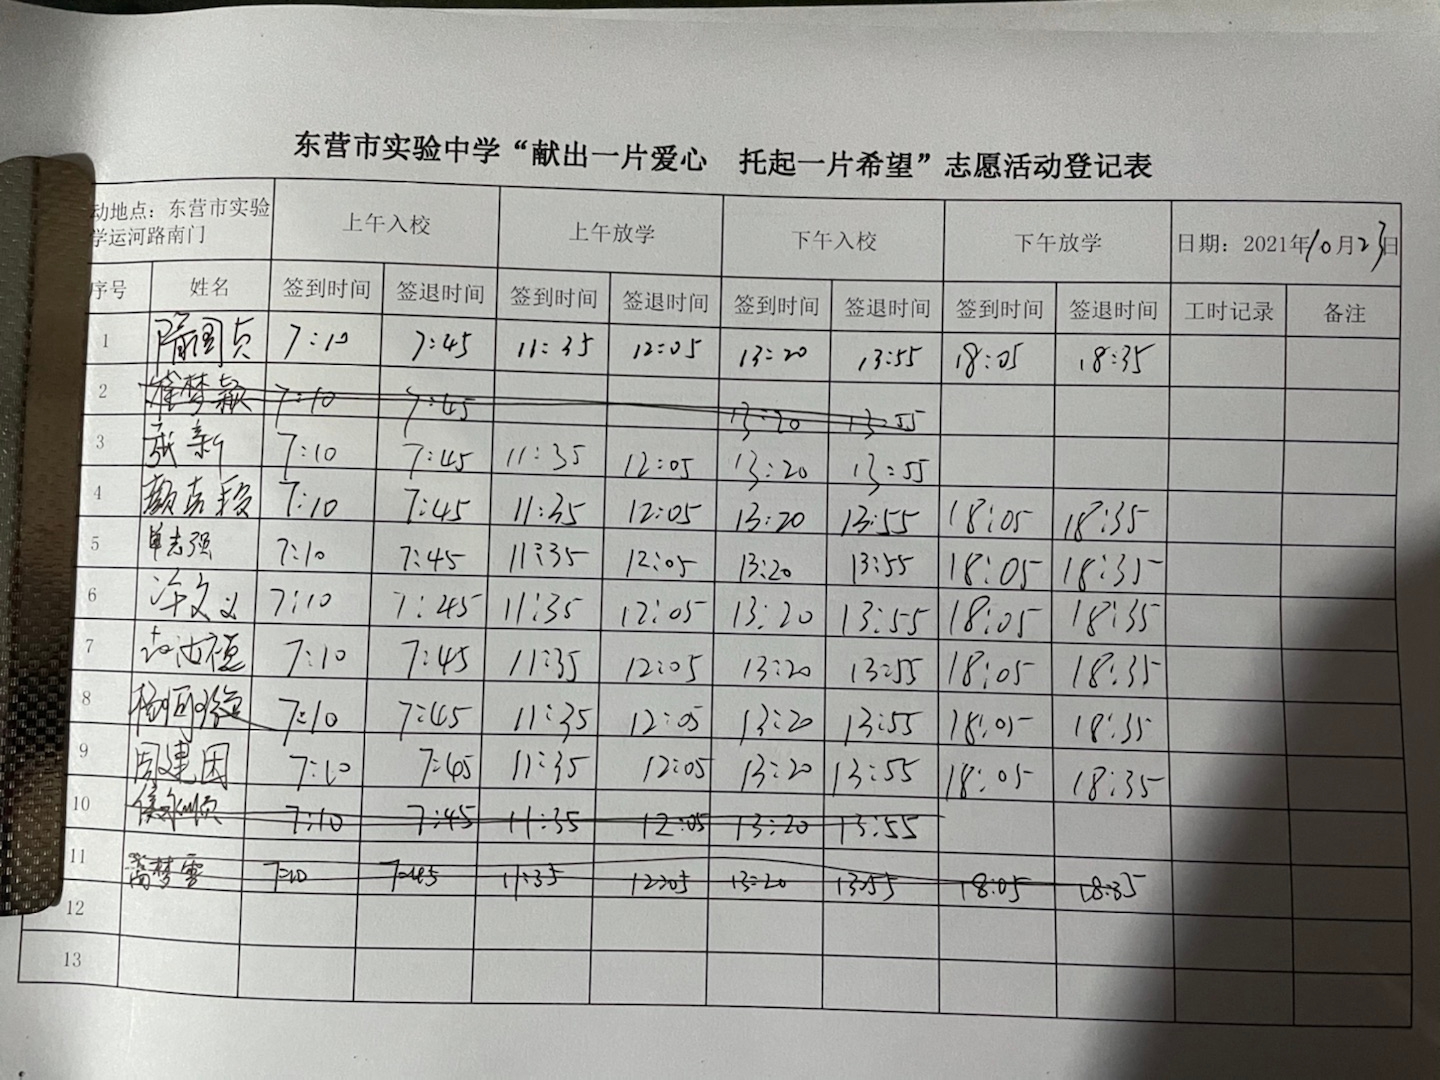 东营市实验中学“献出一片爱心 托起一片希望”志愿活动登记表
动地点：东营市实验 上午入校 上午放学 下午入校 下午放学 日期：2021年10月23日
学运河路南门
序号 姓名 签到时间 签退时间 签到时间 签退时间 签到时间 签退时间 签到时间 签退时间 工时记录 备注
1 7:10 7:45 11:35 12:05 13:20 13:55 18:05 18:35
2 崔梦颖 7:10 7:45 13:20 13:55
3 张新 7:10 7:45 11:35 12:05 13:20 13:55
4 7:10 7:45 11:35 12:05 13:20 13:55 18:05 18:35
5 单志强 7:10 7:45 11:35 12:05 13:20 13:55 18:05 18:35
6 许文义 7:10 7:45 11:35 12:05 13:20 13:55 18:05 18:35
7 7:10 7:45 11:35 12:05 13:20 13:55 18:05 18:35
8 7:10 7:45 11:35 12:05 13:20 13:55 18:05 18:35
9 周建国 7:10 7:45 11:35 12:05 13:20 13:55 18:05 18:35
10 7:10 7:45 11:35 12:05 13:20 13:55
11 7:10 7:45 11:35 12:05 13:20 13:55 18:05 18:35
12
13